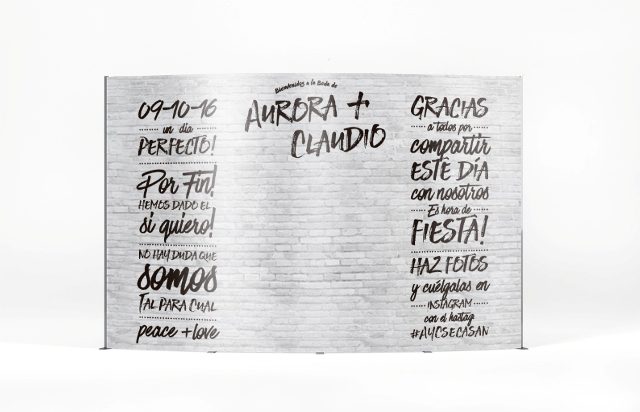 Bienvenidos a la Boda de
AURORA +
CLAUDIO
09-10-16
un día
PERFECTO!
Por Fin!
HEMOS DADO EL
si quiero!
NO HAY DUDA QUE
SOMOS
TAL PARA CUAL
peace + love
GRACIAS
a todos por
compartir
ESTE DÍA
con nosotros
Es hora de
FIESTA!
HAZ FOTOS
y cuélgalas en
INSTAGRAM
con el hastag
#AYCSECASAN